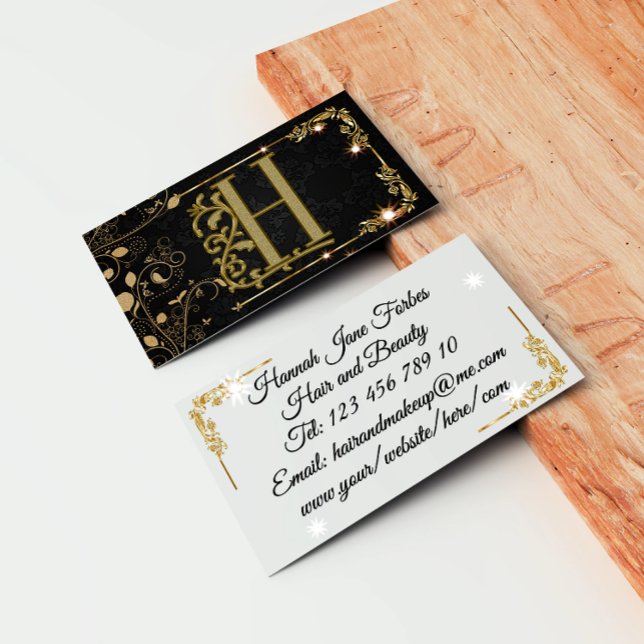 H
Hannah Jane Forbes
Hair and Beauty
Tel: 123 456 789 10
Email: hairandmakeup@me.com
www.your/website/here/com